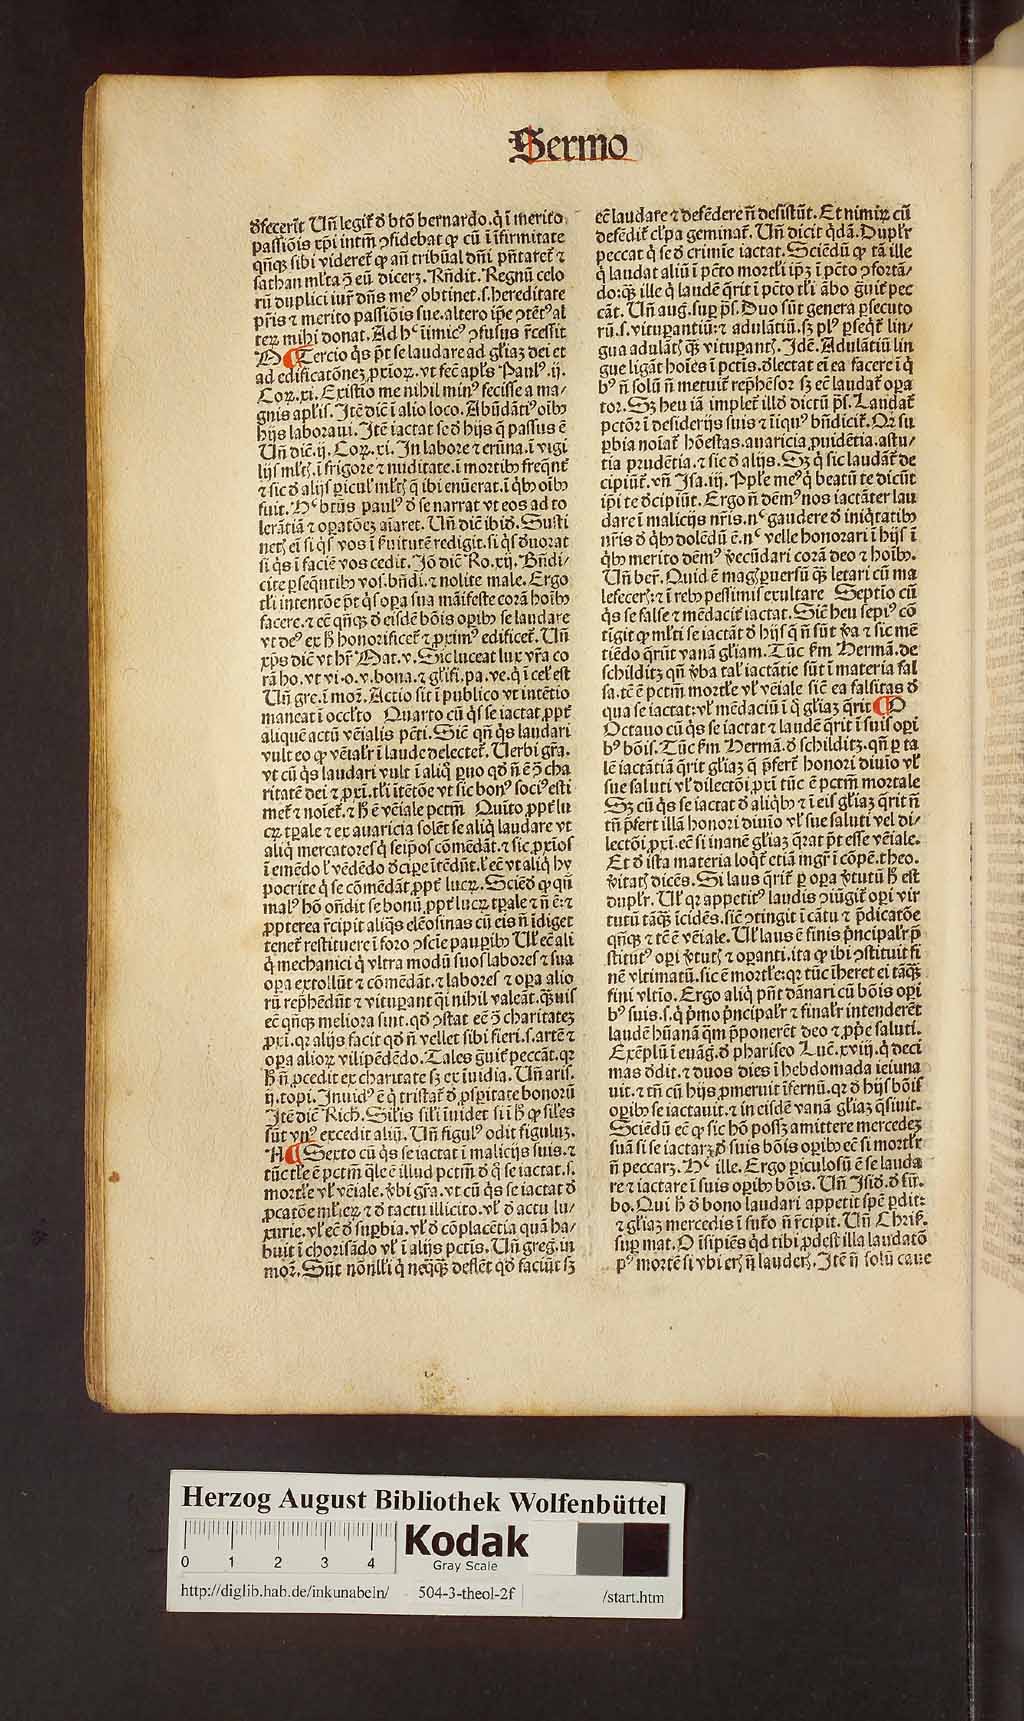 Sermo
ꝺfecerīt Un̄ legit᷑ ꝺ btō bernardo. q̇ ī merito
passiōis xp̄i intm̄ ↄfidebat qꝫ cū ī īfirmitate
qn̄qꝫ sibi videret᷑ qꝫ an̄ tribūal dn̄i pn̄taret᷑ ⁊
sathan ml̄ta ↄ̄ eū dicerꝫ. Rn̄dit. Regnū celo
rū duplici iur̄ dn̄s meꝰ obtinet. s. hereditate
pr̄is ⁊ merito passiōis sue. altero ip̄e ↄtētꝰ al
teꝝ mihi donat. Ad hͨ īimicꝰ ↄfusus r̄cessit
Tercio q̇s pōt se laudare ad gl̄iaꝫ dei et
ad edificatōneꝫ ꝓxioꝝ. vt fec̄ apl̄s Paulꝰ. ij.
Coꝝ. xi. Existīo me nihil minꝰ fecisse a ma/
gnis apl̄is. Itē dic̄ ī alio loco. Abūdātiꝰ oībꝫ
hijs laboraui. Itē iactat se ꝺ hijs q̄ passus ē
Un̄ dic̄. ij. Coꝝ. xi. In labore ⁊ erūna. ī vigi
lijs ml̄tꝭ. ī frigore ⁊ nuditate. ī mortibꝫ freq̄nt᷑
⁊ sic ꝺ alijs ꝑicul̄ ml̄tꝭ q̄ ibi enūerat. ī q̇bꝫ oībꝫ
fuit. Hͨ btūs paulꝰ ꝺ se narrat vt eos ad to
lerātiā ⁊ oꝑatōeꝫ aīaret. Un̄ dic̄ ibiꝺ. Susti
netꝭ eī si q̇s vos ī ẜuitutē redigit. si q̇s ꝺuorat
si q̇s ī faciē vos cedit. Iō dic̄ Ro. xij. Bn̄di/
cite ꝑseq̄ntibꝫ vos. bn̄di. ⁊ nolite male. Ergo
tl̄i intentōe pōt q̇s oꝑa sua māifeste corā hoībꝫ
facere. ⁊ ec̄ qn̄qꝫ ꝺ eisdē bōis oꝑibꝫ se laudare
vt deꝰ ex hͦ honorificet᷑ ⁊ ꝓximꝰ edificet᷑. Un̄
xp̄s dic̄ vt hr̄ Mat. v. Sic luceat lux vr̄a co
rā ho. vt vi. o. v. bona. ⁊ gl̄ifi. pa. ve. q̇ ī cel̄ est
Un̄ gre. ī mor̄. Actio sit ī publico vt intētio
maneat ī occl̄to Quarto cū q̇s se iactat ꝓpt᷑
aliquē actū vēialis pctī. Sic̄ qn̄ q̇s laudari
vult eo qꝫ vēial̄r ī laude delectet᷑. Uerbi gr̄a.
vt cū q̇s laudari vult ī aliq̇ ꝑuo qd̄ n̄ ē ↄ̄ cha
ritatē dei ⁊ ꝓxi. tl̄i ītētōe vt sic bonꝰ sociꝰ esti
met᷑ ⁊ noīet᷑. ⁊ hͦ ē vēiale pctm̄ Quīto ꝓpt᷑ lu
cꝝ tꝑale ⁊ ex auaricia solēt se aliq̇ laudare vt
aliq̇ mercatores q̇ seip̄os cōmēdāt. ⁊ sic ꝓxīos
ī emēdo l̄ vēdēdo ꝺciꝑe ītēdūt. l̄ ec̄ vt aliq̇ hy
pocrite q̇ se cōmēdāt ꝓpt᷑ lucꝝ. Sciēdū qꝫ qn̄
malꝰ hō on̄dit se bonū ꝓpt᷑ lucꝝ tꝑale ⁊ n̄ ē: ⁊
ꝓpterea r̄cipit aliq̇s elēosinas cū eis n̄ īdiget
tenet᷑ restituere ī foro ↄscīe pauꝑibꝫ Ul̄ ec̄ ali
q̇ mechanici q̇ vltra modū suos labores ⁊ sua
oꝑa extollūt ⁊ cōmēdāt. ⁊ labores ⁊ oꝑa alio
rū rep̄hēdūt ⁊ vituꝑant q̇i nihil valeāt. q̄ꝫuis
ec̄ qn̄qꝫ meliora sint. qd̄ ↄstat ec̄ ↄ̄ charitateꝫ
ꝓxi. qꝛ alijs facit qd̄ n̄ vellet sibi fieri. s. artē ⁊
oꝑa alioꝝ vilipēdēdo. Tales gͣuit᷑ peccāt. qꝛ
hͦ n̄ ꝓcedit ex charitate sꝫ ex īuidia. Un̄ aris.
ij. topi. Inuidꝰ ē q̇ tristat᷑ ꝺ ꝓsꝑitate bonorū
Itē dic̄ Rich. Sil̄is sil̄i īuidet si ī hͦ qꝫ sil̄es
sūt vnꝰ excedit aliū. Un̄ figulꝰ odit figulūꝫ.
Sexto cū q̇s se iactat ī malicijs suis. ⁊
tūc tl̄e ē pctm̄ q̄le ē illud pctm̄ ꝺ q̇ se iactat. s.
mortl̄e vl̄ vēiale. v̄bi gr̄a. vt cū q̇s se iactat ꝺ
ꝓcatōe ml̄ieꝝ ⁊ ꝺ tactu illicito. vl̄ ꝺ actu lu/
xurie. vl̄ ec̄ ꝺ suꝑbia. vl̄ ꝺ cōplacētia quā ha/
buit ī chorisādo vl̄ ī alijs pctīs. Un̄ greg. in
mor̄. Sūt nōnl̄li q̇ neq̄qꝫ deflēt qd̄ faciūt sꝫ
ec̄ laudare ⁊ defēdere n̄ desistūt. Et nimiꝝ cū
defēdit᷑ cl̄pa geminat᷑. Un̄ dicit q̇dā. Dupl̄r
peccat q̇ se ꝺ crimīe iactat. Sciēdū qꝫ tā ille
q̇ laudat aliū ī pctō mortl̄i ip̄ꝫ ī pctō ↄfortā/
do: q̄ꝫ ille q̇ laudē q̄rit ī pctō tl̄i ābo gͣuit᷑ pec
cāt. Un̄ aug. suꝑ ps̄. Duo sūt genera ꝑsecuto
rū. s. vituꝑantiū: ⁊ adulātiū. sꝫ plꝰ ꝑseq̄t᷑ lin/
gua adulātꝭ q̄ꝫ vituꝑantꝭ. Idē. Adulātiū lin
gue ligāt hoīes ī pctīs. ꝺlectat eī ea facere ī q̇
bꝰ n̄ solū n̄ metuit᷑ rep̄hēsor sꝫ ec̄ laudat᷑ oꝑa
tor. Sꝫ heu iā implet᷑ illd̄ dictū ps̄. Laudat᷑
pctōr ī desiderijs suis ⁊ iniquꝰ bn̄dicit᷑. Qꝛ su
ꝑbia noīat᷑ hōestas. auaricia ꝓuidētia. astu/
tia prudētia. ⁊ sic ꝺ alijs. Sꝫ q̇ sic laudāt᷑ de
cipiūt᷑. vn̄ Isa. iij. Pp̄le meꝰ q̇ beatū te dicūt
ip̄i te ꝺcipiūt. Ergo n̄ dēmꝰ nos iactāter lau
dare ī malicijs nr̄is. nͨ gaudere ꝺ iniq̇tatibꝫ
nr̄is ꝺ q̇bꝫ dolēdū ē. nͨ velle honorari ī hijs ī
q̇bꝫ merito dēmꝰ v̄ecūdari corā deo ⁊ hoībꝫ.
Un̄ ber̄. Quid ē magꝭ ꝑuersū q̄ꝫ letari cū ma
lefecerꝭ: ⁊ ī rebꝫ pessimis exultare Septīo cū
q̇s se false ⁊ mēdacit᷑ iactat. Sic̄ heu sepiꝰ cō
tigit qꝫ ml̄ti se iactāt ꝺ hijs q̄ n̄ sūt v̄a ⁊ sic mē
tiēdo q̄rūt vanā gl̄iam. Tūc ẜm Hermā. de
schilditꝫ qn̄ v̄ba tal̄ iactātie sūt ī materia fal
sa. tc̄ ē pctm̄ mortl̄e vl̄ vēiale sic̄ ea falsitas ꝺ
qua se iactat: vl̄ mēdaciū ī q̇ gl̄iaꝫ q̄rit
Octauo cū q̇s se iactat ⁊ laudē q̄rit ī suis oꝑi
bꝰ bōis. Tūc ẜm Hermā. ꝺ schilditꝫ. qn̄ ꝑ ta
lē iactātiā q̄rit gl̄iaꝫ q̄ p̄fert᷑ honori diuīo vl̄
sue saluti vl̄ dilectōi ꝓxi tūc ē pctm̄ mortale
Sꝫ cū q̇s se iactat ꝺ aliq̇bꝫ ⁊ ī eis gl̄iaꝫ q̄rit n̄
tn̄ p̄fert illā honori diuīo vl̄ sue saluti vel di/
lectōi ꝓxi. ec̄ si inanē gl̄iaꝫ q̄rat pōt esse vēiale.
Et ꝺ ista materia loqt᷑ etiā mgr̄ ī cōpē. theo.
v̄itatꝭ dicēs. Si laus q̄rit᷑ ꝑ oꝑa v̄tutū hͦ est
dupl̄r. Ul̄ qꝛ appetitꝰ laudis ↄiūgit᷑ oꝑi vir
tutū tāqꝫ īcidēs. sic̄ ↄtingit ī cātu ⁊ p̄dicatōe
qn̄qꝫ ⁊ tc̄ ē vēiale. Ul̄ laus ē finis p̄ncipal̄r p̄
stitutꝰ oꝑi v̄tutꝭ ⁊ oꝑanti. ita qꝫ ibi ↄstituit fi
nē vltimatū. sic ē mortl̄e: qꝛ tūc īheret ei tāqꝫ
fini vltīo. Ergo aliq̇ pn̄t dānari cū bōis oꝑi
bꝰ suis. s. q̇ p̄mo p̄ncipal̄r ⁊ final̄r intenderēt
laudē hūanā q̄m p̄ponerēt deo ⁊ ꝓp̄e saluti.
Exēplū ī euāg. ꝺ phariseo Luc̄. xviij. q̇ deci
mas ꝺdit. ⁊ duos dies ī hebdomada ieiuna
uit. ⁊ tn̄ cū hijs ꝓmeruit īfernū. qꝛ ꝺ hijs bōis
oꝑibꝫ se iactauit. ⁊ in eisdē vanā gl̄iaꝫ q̄siuit.
Sciēdū ec̄ qꝫ sic hō possꝫ amittere mercedeꝫ
suā si se iactarꝫ ꝺ suis bōis oꝑibꝫ ec̄ si mortl̄r
n̄ peccarꝫ. Hͨ ille. Ergo ꝑiculosū ē se lauda
re ⁊ iactare ī suis oꝑibꝫ bōis. Un̄ Isiꝺ. ꝺ sū.
bo. Qui hͦ ꝺ bono laudari appetit spē ꝑdit:
⁊ gl̄iaꝫ mercedis ī futō n̄ r̄cipit. Un̄ Chris.
suꝑ mat. O īsipiēs qd̄ tibi ꝓdest illa laudatō
pꝰ mortē si vbi erꝭ n̄ lauderꝭ. Itē n̄ solū caue
Herzog August Bibliothek Wolfenbüttel
0 1 2 3 4
Kodak
Gray Scale
http://diglib.hab.de/inkunabeln/ 504-3-theol-2f /start.htm